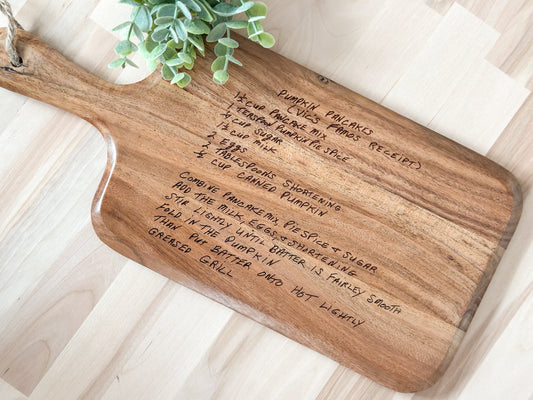 PUMPKIN PANCAKES
(VIC'S FAMOS RECEIPT)
1½ CUP PANCAKE MIX
1 TEASPOON PUMPKIN PIE SPICE
¼ CUP SUGAR
1½ CUP MILK
2 EGGS
2 TABLESPOONS SHORTENING
½ CUP CANNED PUMPKIN
COMBINE PANCAKE MIX, PIE SPICE & SUGAR
ADD THE MILK, EGGS, & SHORTENING
STIR LIGHTLY UNTIL BATTER IS FAIRLEY SMOOTH
FOLD IN THE PUMPKIN
THAN PUT BATTER ONTO HOT LIGHTLY
GREASED GRILL